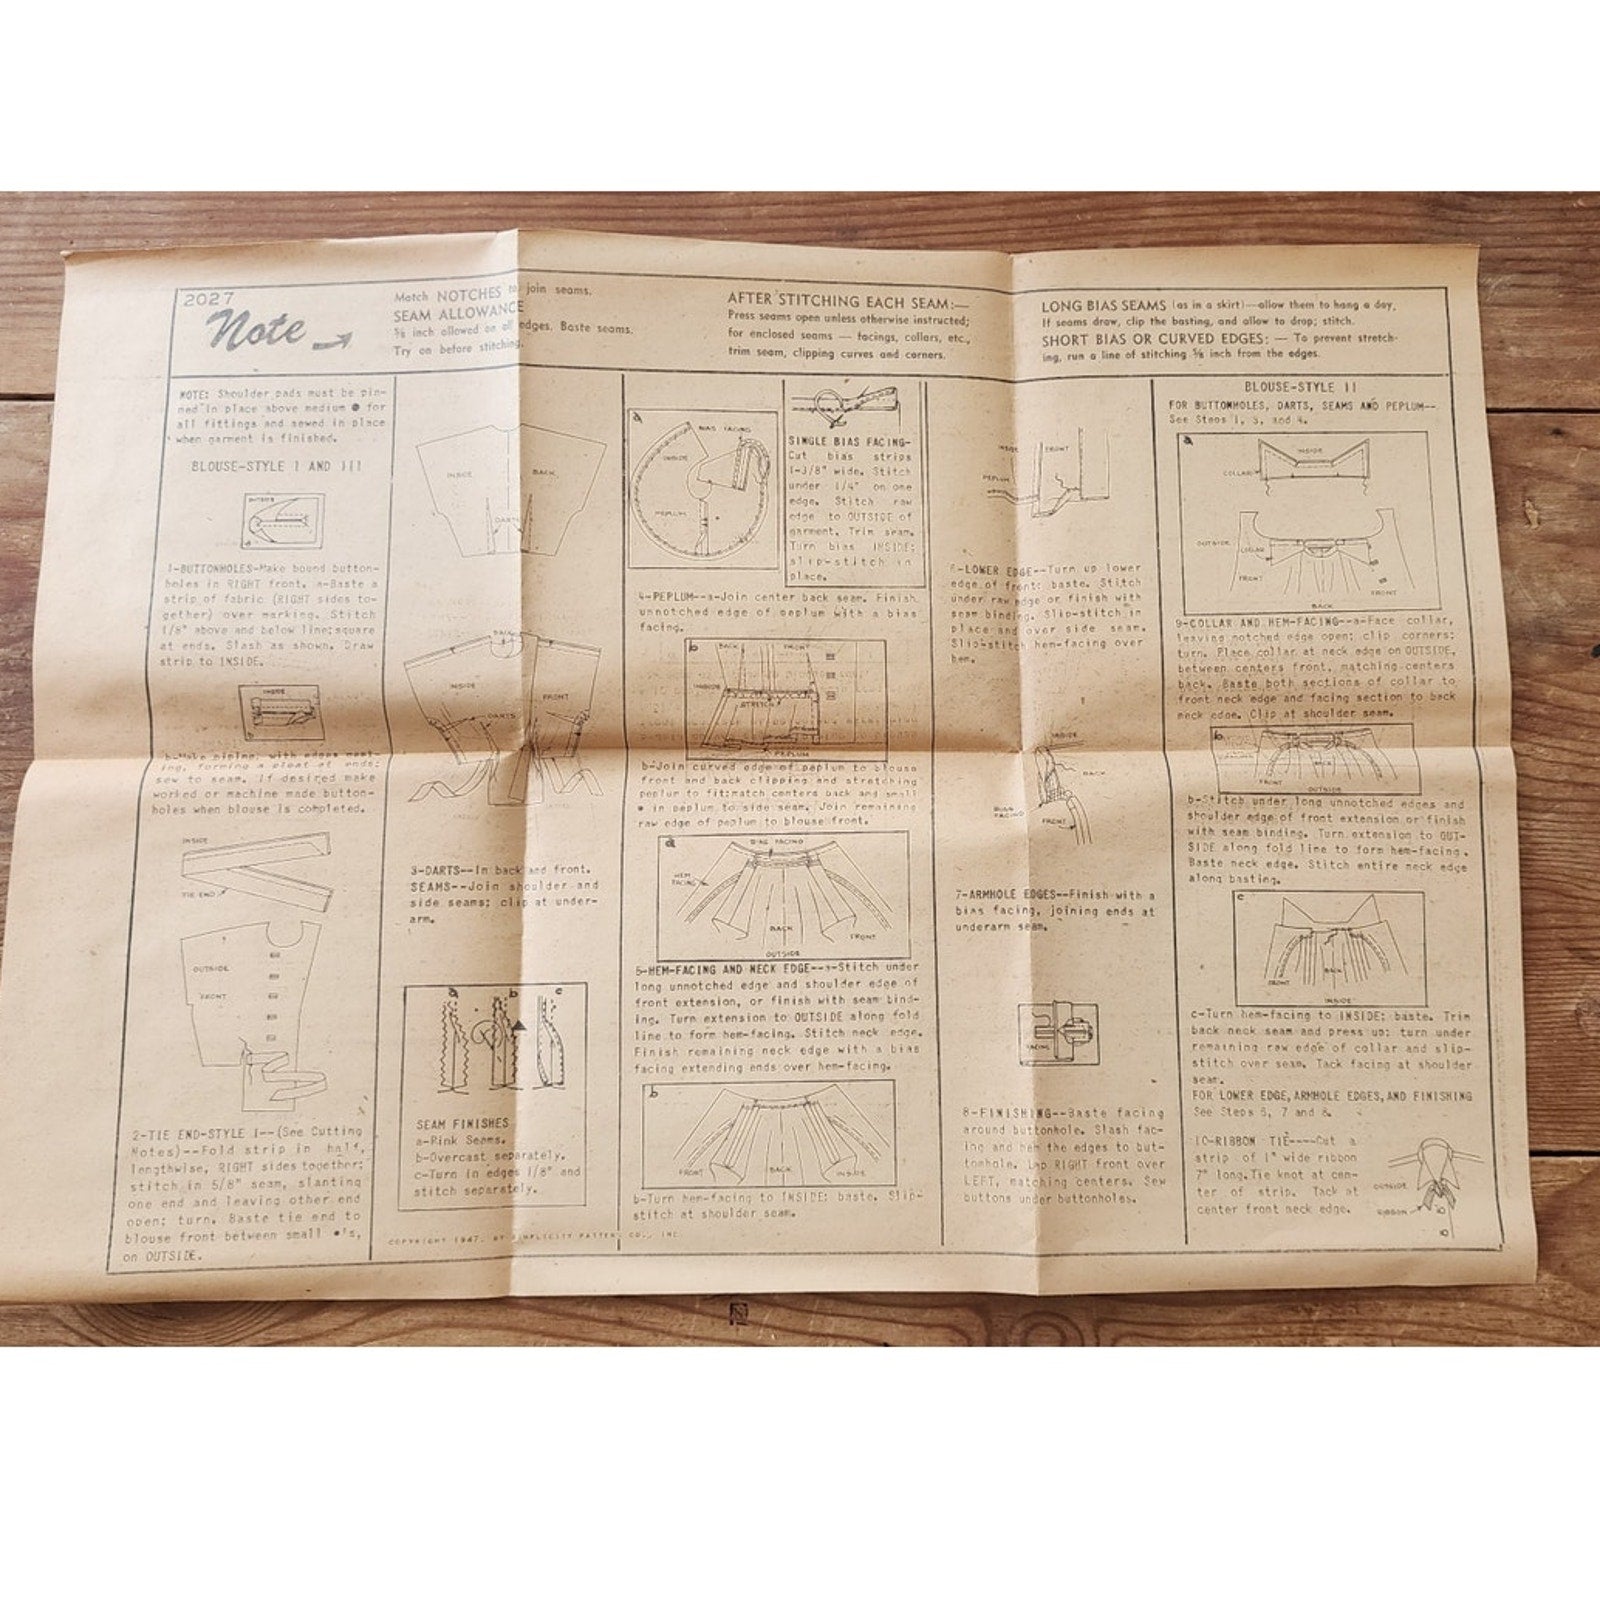 2027
Note
Match NOTCHES to join seams.
SEAM ALLOWANCE
⅝ inch allowed on all edges. Baste seams.
Try on before stitching.
AFTER STITCHING EACH SEAM:—
Press seams open unless otherwise instructed;
for enclosed seams — facings, collars, etc.,
trim seam, clipping curves and corners.
LONG BIAS SEAMS (as in a skirt)—allow them to hang a day,
If seams draw, clip the basting, and allow to drop; stitch.
SHORT BIAS OR CURVED EDGES: — To prevent stretch-
ing, run a line of stitching ⅝ inch from the edges.
NOTE: Shoulder pads must be pin-
ned in place above medium ● for
all fittings and sewed in place
when garment is finished.
BLOUSE-STYLE I AND III
OUTSIDE
a
1-BUTTONHOLES-Make bound button-
holes in RIGHT front. a-Baste a
strip of fabric (RIGHT sides to-
gether) over marking. Stitch
1/8" above and below line;square
at ends. Slash as shown. Draw
strip to INSIDE.
INSIDE
b
b-Make piping, with edges meet-
ing, forming a pleat at ends;
sew to seam. If desired make
worked or machine made button-
holes when blouse is completed.
INSIDE
TIE END
OUTSIDE
FRONT
2-TIE END-STYLE I--(See Cutting
Notes)--Fold strip in half,
lengthwise, RIGHT sides together;
stitch in 5/8" seam, slanting
one end and leaving other end
open; turn. Baste tie end to
blouse front between small ●'s,
on OUTSIDE.
INSIDE
BACK
DARTS
BACK
INSIDE
FRONT
DARTS
3-DARTS--In back and front.
SEAMS--Join shoulder and
side seams; clip at under-
arm.
a b c
SEAM FINISHES
a-Pink Seams.
b-Overcast separately.
c-Turn in edges 1/8" and
stitch separately.
COPYRIGHT 1947, BY SIMPLICITY PATTERN CO., INC
a
BIAS FACING
INSIDE
PEPLUM
SINGLE BIAS FACING-
Cut bias strips
1-3/8" wide. Stitch
under 1/4" on one
edge. Stitch raw
edge to OUTSIDE of
garment. Trim seam.
Turn bias INSIDE;
slip-stitch in
place.
4-PEPLUM--a-Join center back seam. Finish
unnotched edge of peplum with a bias
facing.
b
BACK
FRONT
INSIDE
STRETCH
PEPLUM
b-Join curved edge of peplum to blouse
front and back clipping and stretching
peplum to fit;match centers back and small
● in peplum to side seam. Join remaining
raw edge of peplum to blouse front.
a
BIAS FACING
HEM
FACING
BACK
FRONT
OUTSIDE
5-HEM-FACING AND NECK EDGE--a-Stitch under
long unnotched edge and shoulder edge of
front extension, or finish with seam bind-
ing. Turn extension to OUTSIDE along fold
line to form hem-facing. Stitch neck edge.
Finish remaining neck edge with a bias
facing extending ends over hem-facing.
b
FRONT
BACK
INSIDE
b-Turn hem-facing to INSIDE; baste. Slip-
stitch at shoulder seam.
INSIDE
FRONT
PEPLUM
6-LOWER EDGE--Turn up lower
edge of front; baste. Stitch
under raw edge or finish with
seam binding. Slip-stitch in
place and over side seam.
Slip-stitch hem-facing over
hem.
INSIDE
BACK
BIAS
FACING
FRONT
7-ARMHOLE EDGES--Finish with a
bias facing, joining ends at
underarm seam.
FACING
8-FINISHING--Baste facing
around buttonhole. Slash fac-
ing and hem the edges to but-
tonhole. Lap RIGHT front over
LEFT, matching centers. Sew
buttons under buttonholes.
BLOUSE-STYLE II
FOR BUTTONHOLES, DARTS, SEAMS AND PEPLUM--
See Steps 1, 3, and 4.
a
INSIDE
COLLAR
OUTSIDE
COLLAR
FRONT
FRONT
BACK
9-COLLAR AND HEM-FACING--a-Face collar,
leaving notched edge open; clip corners;
turn. Place collar at neck edge on OUTSIDE,
between centers front, matching centers
back. Baste both sections of collar to
front neck edge and facing section to back
neck edge. Clip at shoulder seam.
b
BACK
FRONT
OUTSIDE
b-Stitch under long unnotched edges and
shoulder edge of front extension or finish
with seam binding. Turn extension to OUT-
SIDE along fold line to form hem-facing.
Baste neck edge. Stitch entire neck edge
along basting.
c
BACK
FRONT
INSIDE
c-Turn hem-facing to INSIDE; baste. Trim
back neck seam and press up; turn under
remaining raw edge of collar and slip-
stitch over seam. Tack facing at shoulder
seam.
FOR LOWER EDGE, ARMHOLE EDGES, AND FINISHING
See Steps 6, 7 and 8.
10-RIBBON TIE----Cut a
strip of 1" wide ribbon
7" long.Tie knot at cen-
ter of strip. Tack at
center front neck edge.
OUTSIDE
RIBBON